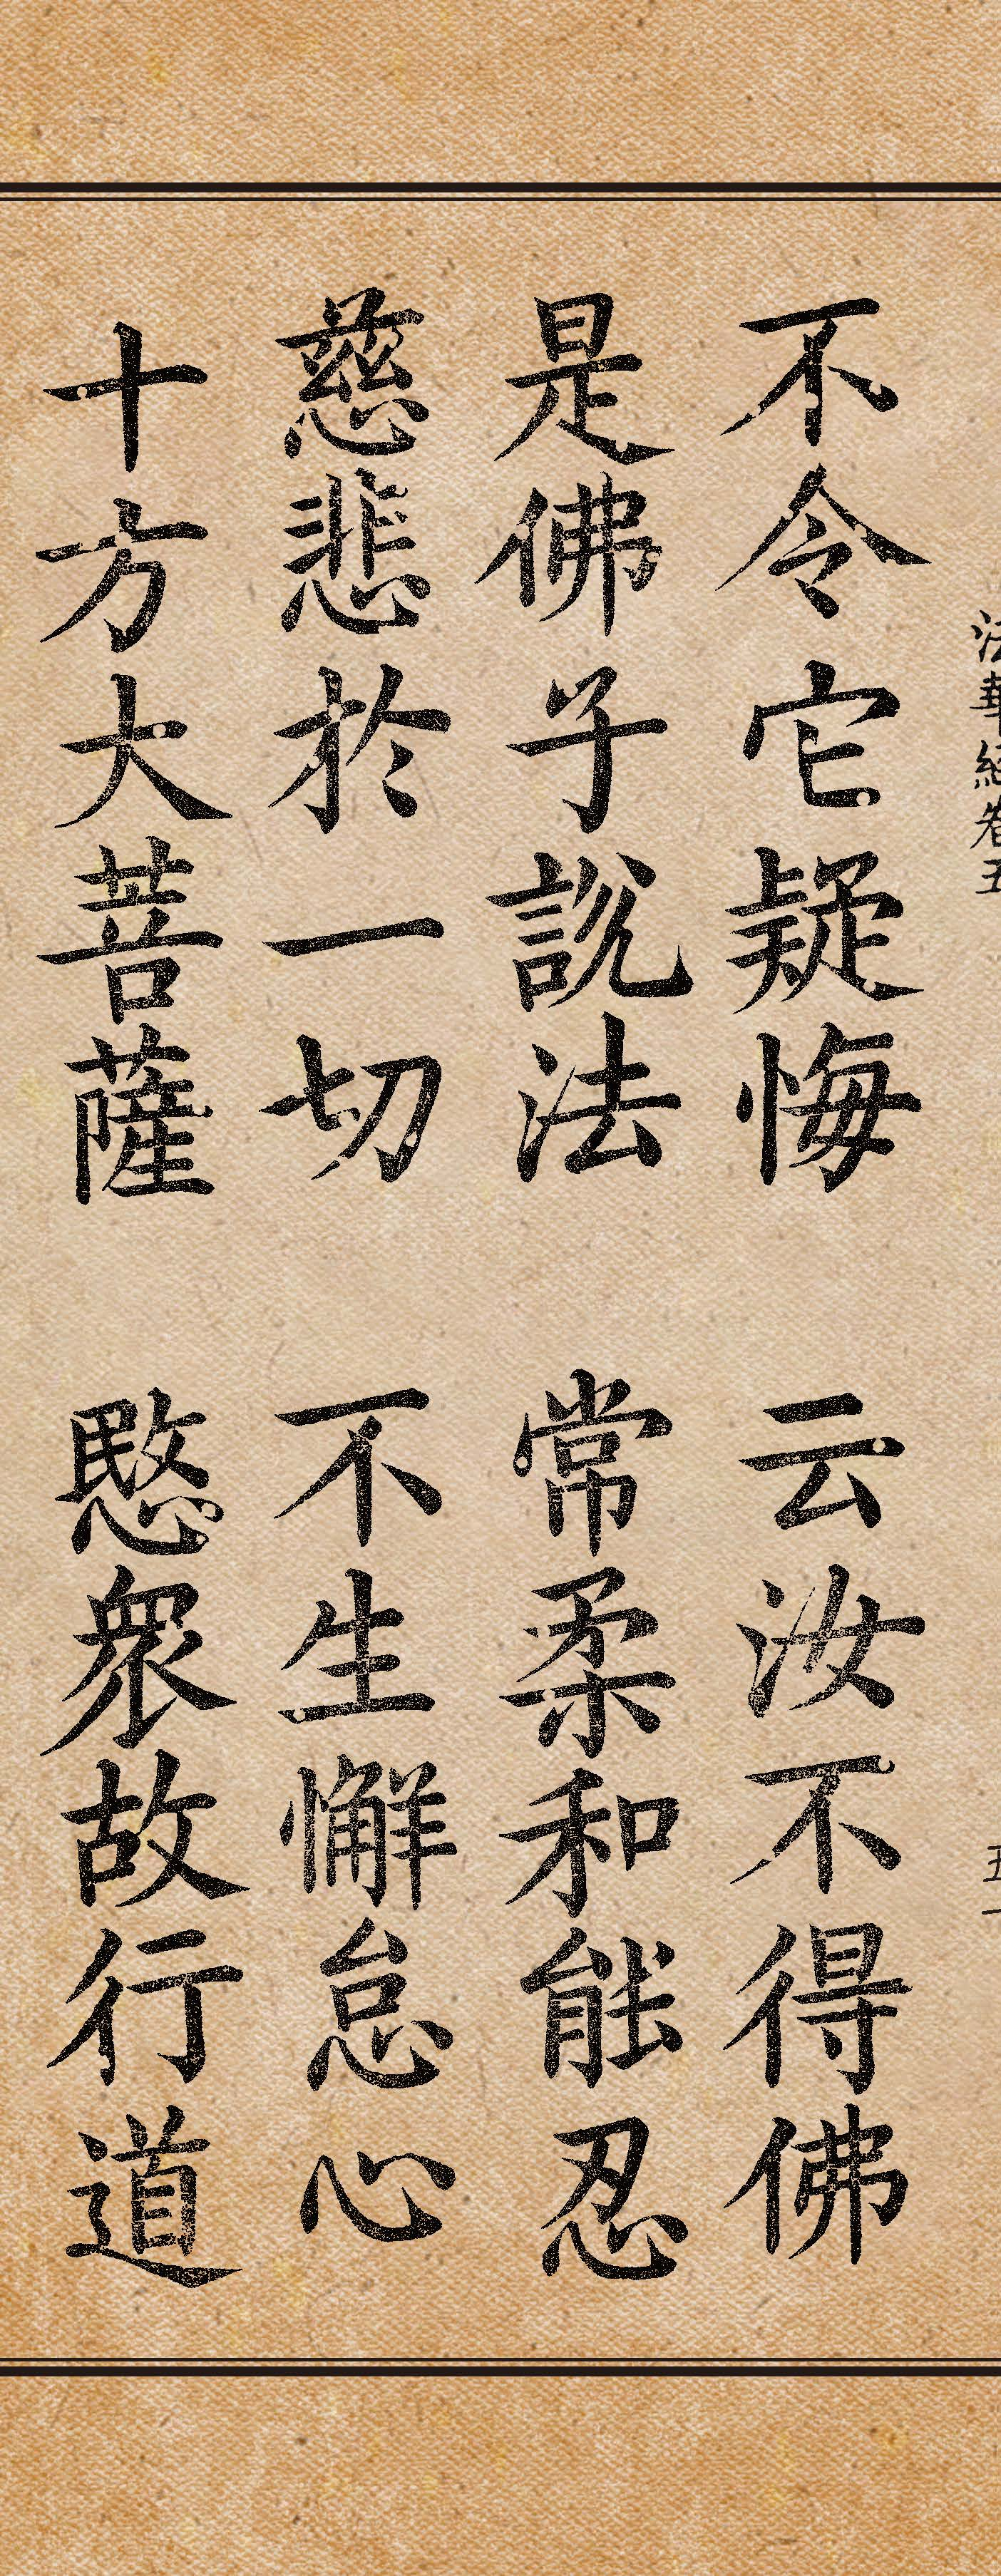 法華經卷五
五一
不令它疑悔 云汝不得佛
是佛子說法 常柔和能忍
慈悲於一切 不生懈怠心
十方大菩薩 愍衆故行道